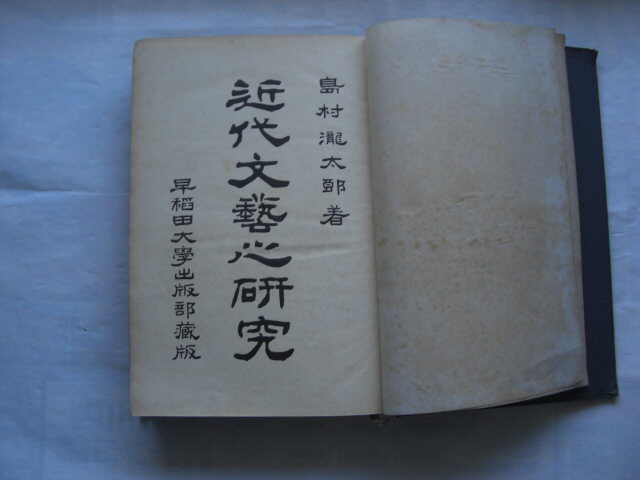 島村瀧太郎着
近代文藝之研究
早稻田大學出版部藏版